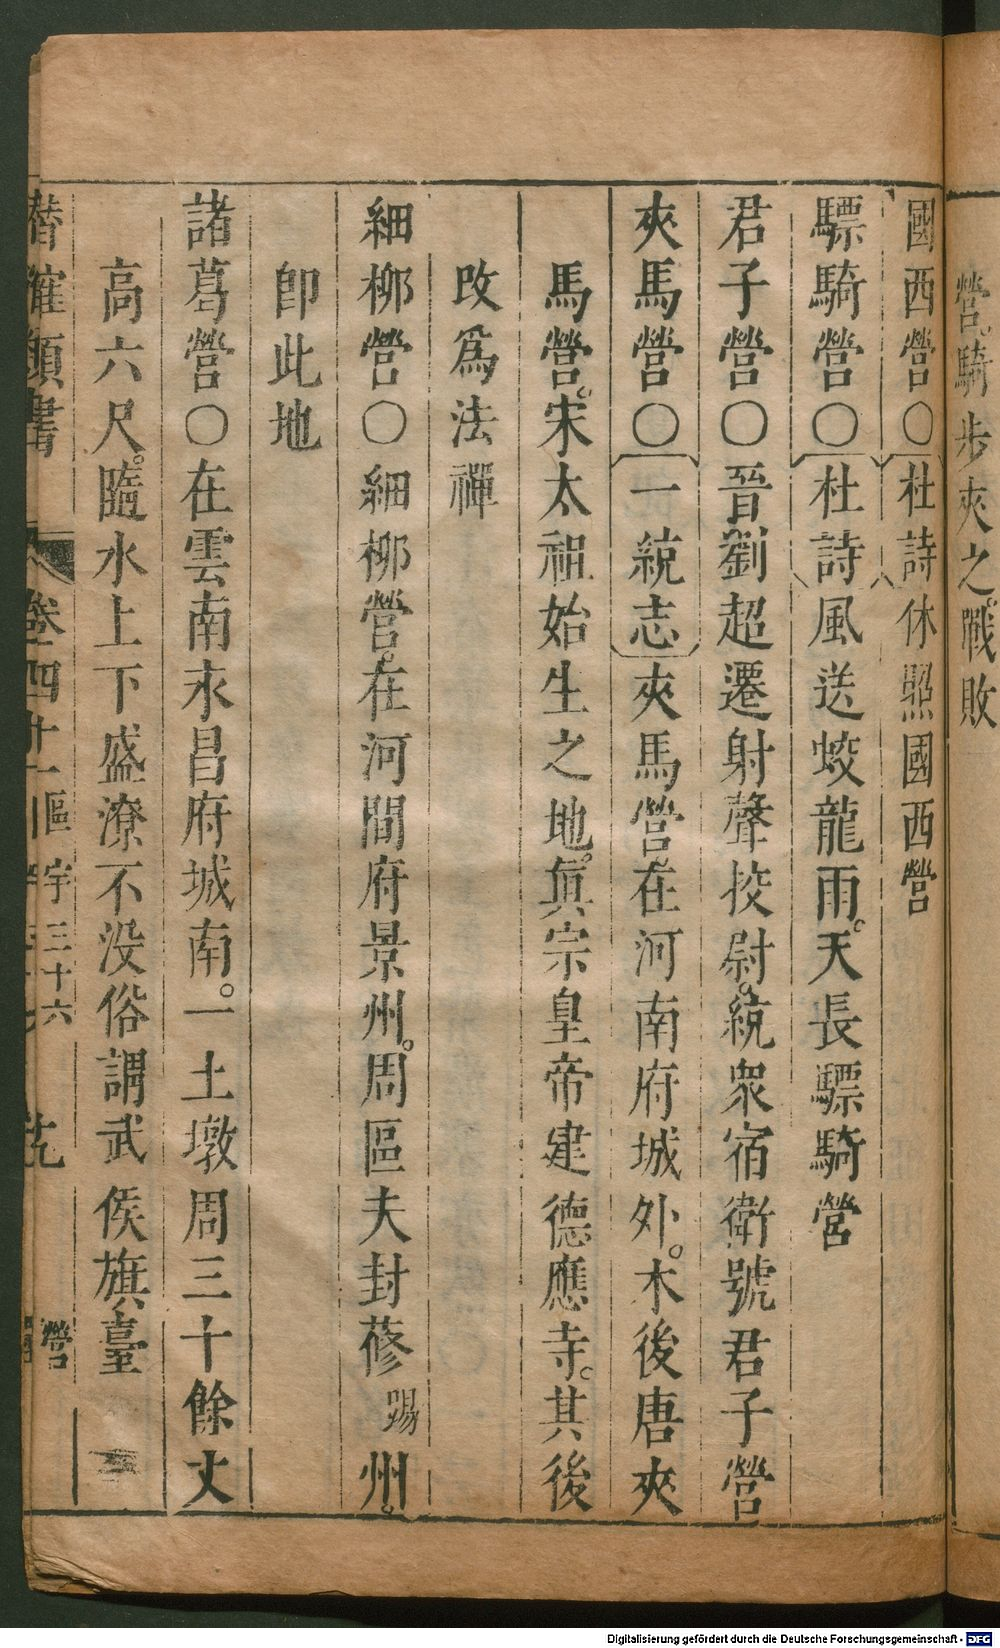 營。騎步夾之。戰敗
國西營○杜詩休照國西營
驃騎營○杜詩風送蛟龍雨。天長驃騎營
君子營○晉劉超遷射聲挍尉。統衆宿衛號君子營
夾馬營○一統志夾馬營在河南府城外。本後唐夾
馬營。宋太祖始生之地。眞宗皇帝建德應寺。其後
改爲法禪
細柳營○細柳營。在河間府景州。周亞夫封蓨踢州。
卽此地
諸葛營○在雲南永昌府城南。一土墩周三十餘丈
高六尺。隨水上下盛潦不没俗謂武侯旗臺
潛確類書 卷四十一區宇三十六 營
Digitalisierung gefördert durch die Deutsche Forschungsgemeinschaft - DFG